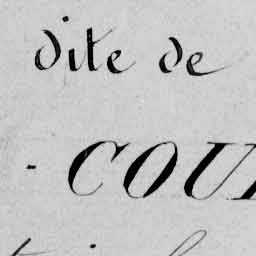 dite de
- COU